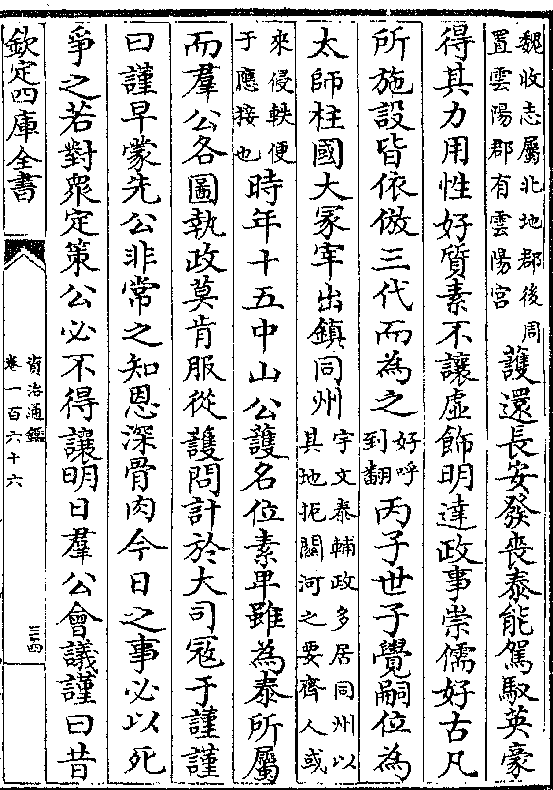 魏收志屬北地郡後周
置雲陽郡有雲陽宮
護還長安發喪泰能駕馭英豪
得其力用性好質素不讓虛飾明達政事崇儒好古凡
所施設皆依倣三代而為之
好呼
到翻
丙子世子覺嗣位為
太師柱國大冢宰出鎮同州
宇文泰輔政多居同州以
其地扼關河之要齊人或
來侵軼便
于應接也
時年十五中山公護名位素卑雖為泰所屬
而羣公各圖執政莫肯服從護問計於大司寇于謹謹
曰謹早蒙先公非常之知恩深骨肉今日之事必以死
爭之若對衆定策公必不得讓明日羣公會議謹曰昔
欽定四庫全書
資治通鑑
卷一百六十六
三四